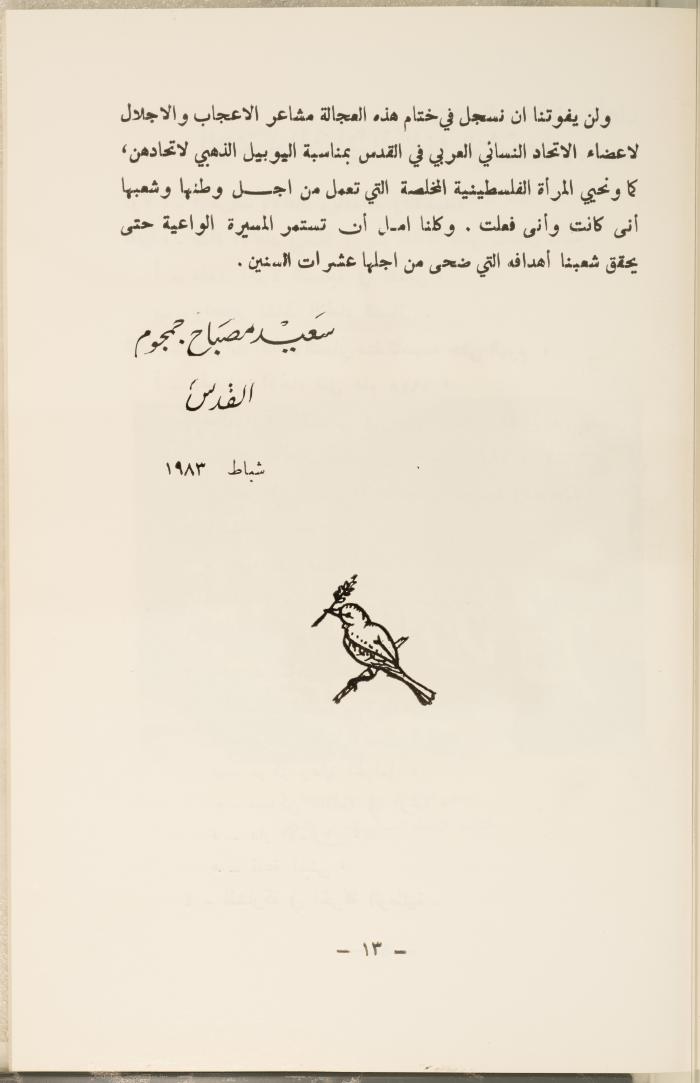 ولن يفوتنا ان نسجل في ختام هذه العجالة مشاعر الاعجاب والاجلال
لاعضاء الاتحاد النسائي العربي في القدس بمناسبة اليوبيل الذهبي لاتحادهن،
كما ونحيي المرأة الفلسطينية المخلصة التي تعمل من اجـــل وطنها وشعبها
أنى كانت وأنى فعلت . وكلنا امـل أن تستمر المسيرة الواعية حتى
يحقق شعبنا أهدافه التي ضحى من اجلها عشرات السنين .
سَعيْد مصبَاح جمجوم
القدس
شباط ١٩٨٣
– ١٣ –